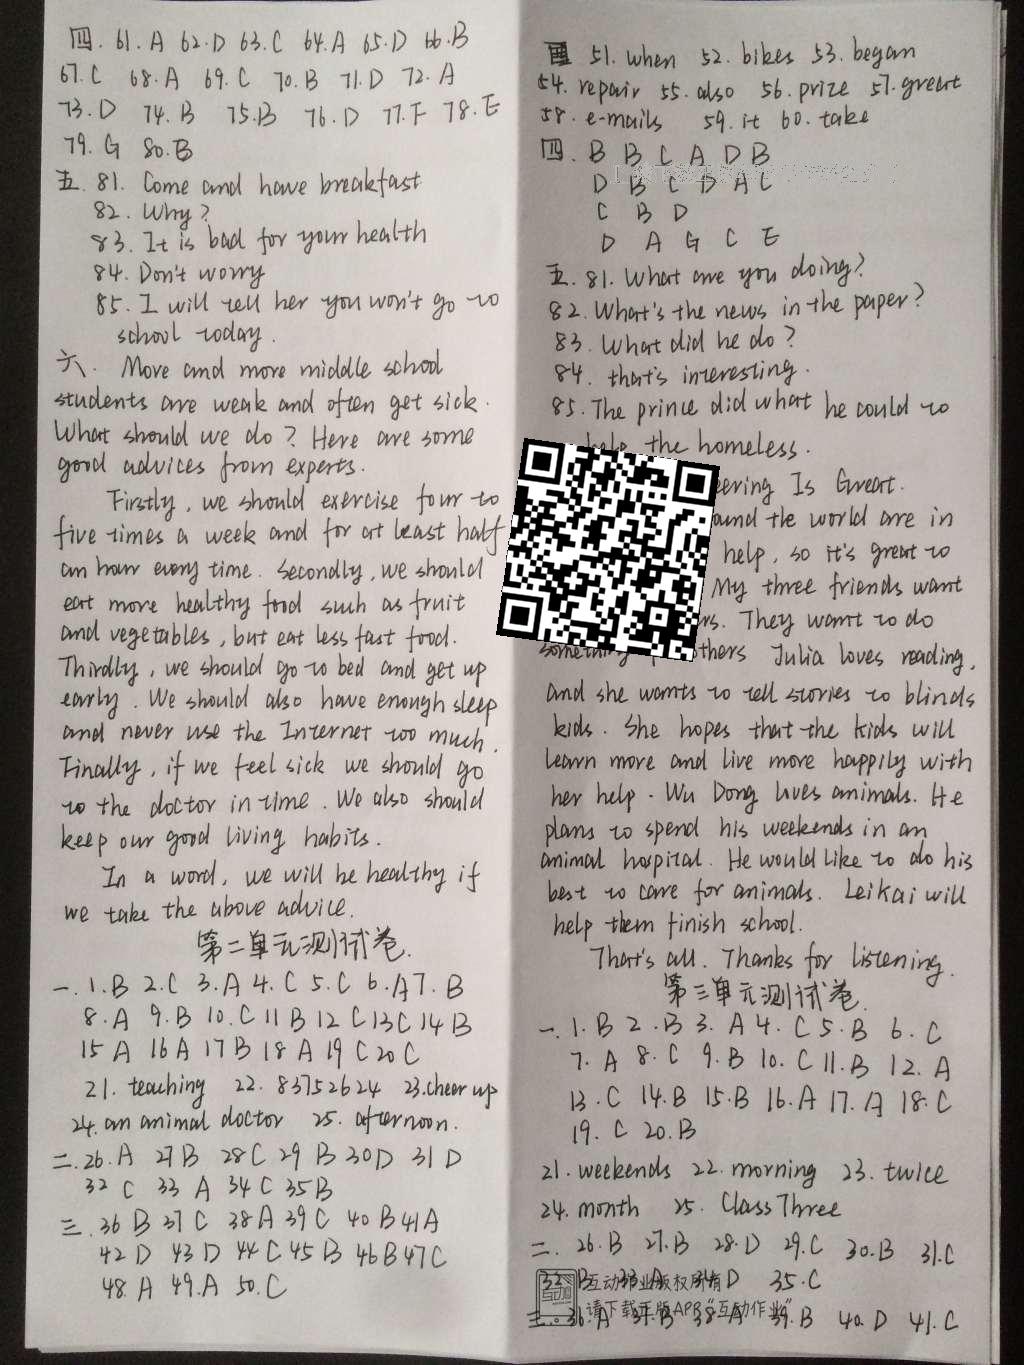 四. 61. A 62. D 63. C 64. A 65. D 66. B
67. C 68. A 69. C 70. B 71. D 72. A
73. D 74. B 75. B 76. D 77. F 78. E
79. G 80. B
五. 81. Come and have breakfast
82. Why?
83. It is bad for your health
84. Don't worry
85. I will tell her you won't go to
school today.
六. More and more middle school
students are weak and often get sick.
What should we do? Here are some
good advices from experts.
Firstly, we should exercise four to
five times a week and for at least half
an hour every time. Secondly, we should
eat more healthy food such as fruit
and vegetables, but eat less fast food.
Thirdly, we should go to bed and get up
early. We should also have enough sleep
and never use the Internet too much.
Finally, if we feel sick we should go
to the doctor in time. We also should
keep our good living habits.
In a word, we will be healthy if
we take the above advice.
第二单元测试卷.
一. 1. B 2. C 3. A 4. C 5. C 6. A 7. B
8. A 9. B 10. C 11 B 12 C 13 C 14 B
15 A 16 A 17 B 18 A 19 C 20 C
21. teaching 22. 83752624 23. cheer up
24. an animal doctor 25. afternoon.
二. 26. A 27 B 28 C 29 B 30 D 31 D
32 C 33 A 34 C 35 B
三. 36 B 37 C 38 A 39 C 40 B 41 A
42 D 43 D 44 C 45 B 46 B 47 C
48. A 49. A 50. C
51. when 52. bikes 53. began
54. repair 55. also 56. prize 57. great
58. e-mails 59. it 60. take
四. B B C A D B
D B C D A C
C B D
D A G C E
五. 81. What are you doing?
82. What's the news in the paper?
83. What did he do?
84. that's interesting.
85. The prince did what he could to
help the homeless.
Is Great.
the world are in
help, so it's great to
My three friends want
They want to do
something others Julia loves reading,
and she wants to tell stories to blinds
kids. She hopes that the kids will
learn more and live more happily with
her help. Wu Dong loves animals. He
plans to spend his weekends in an
animal hospital. He would like to do his
best to care for animals. Lei Kai will
help them finish school.
That's all. Thanks for listening.
第三单元测试卷.
一. 1. B 2. B 3. A 4. C 5. B 6. C
7. A 8. C 9. B 10. C 11. B 12. A
13. C 14. B 15. B 16. A 17. A 18. C
19. C 20. B
21. weekends 22. morning 23. twice
24. month 25. Class Three
二. 26. B 27. B 28. D 29. C 30. B 31. C
32. B 33. A 34. D 35. C
互动作业版权所有
请下载手版APP"互动作业"
三. 36. A 37. B 38. A 39. B 40. D 41. C